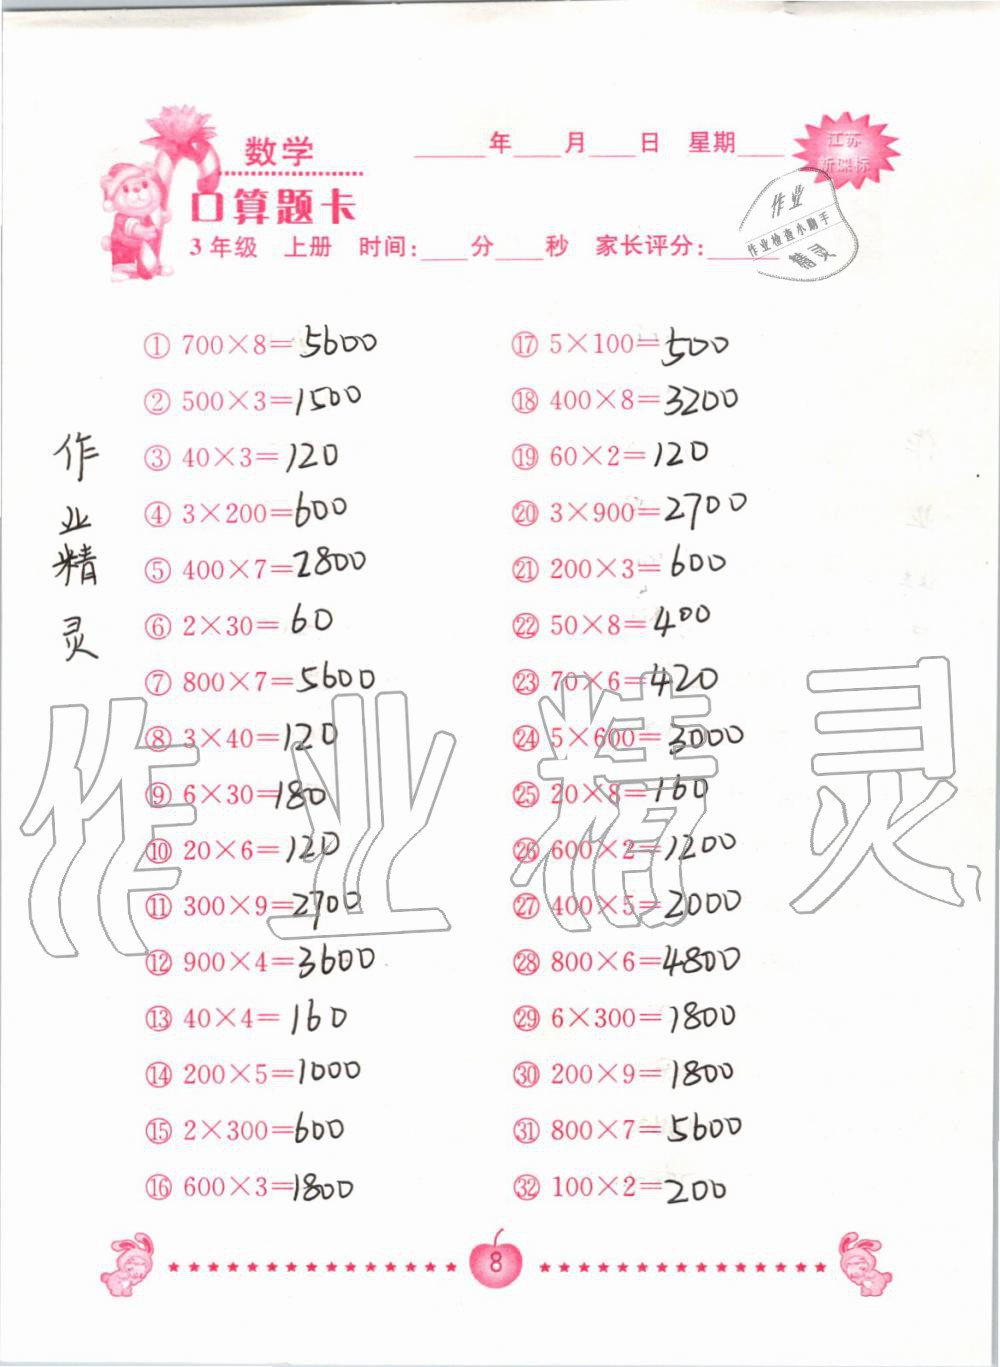 数学
口算题卡
____年____月____日 星期____
江苏
新课标
3年级 上册 时间:____分____秒 家长评分:____
作业
作业检查小助手
精灵
① 700×8=5600
② 500×3=1500
③ 40×3=120
④ 3×200=600
⑤ 400×7=2800
⑥ 2×30=60
⑦ 800×7=5600
⑧ 3×40=120
⑨ 6×30=180
⑩ 20×6=120
⑪ 300×9=2700
⑫ 900×4=3600
⑬ 40×4=160
⑭ 200×5=1000
⑮ 2×300=600
⑯ 600×3=1800
⑰ 5×100=500
⑱ 400×8=3200
⑲ 60×2=120
⑳ 3×900=2700
㉑ 200×3=600
㉒ 50×8=400
㉓ 70×6=420
㉔ 5×600=3000
㉕ 20×8=160
㉖ 600×2=1200
㉗ 400×5=2000
㉘ 800×6=4800
㉙ 6×300=1800
㉚ 200×9=1800
㉛ 800×7=5600
㉜ 100×2=200
作业精灵
作业精灵
8